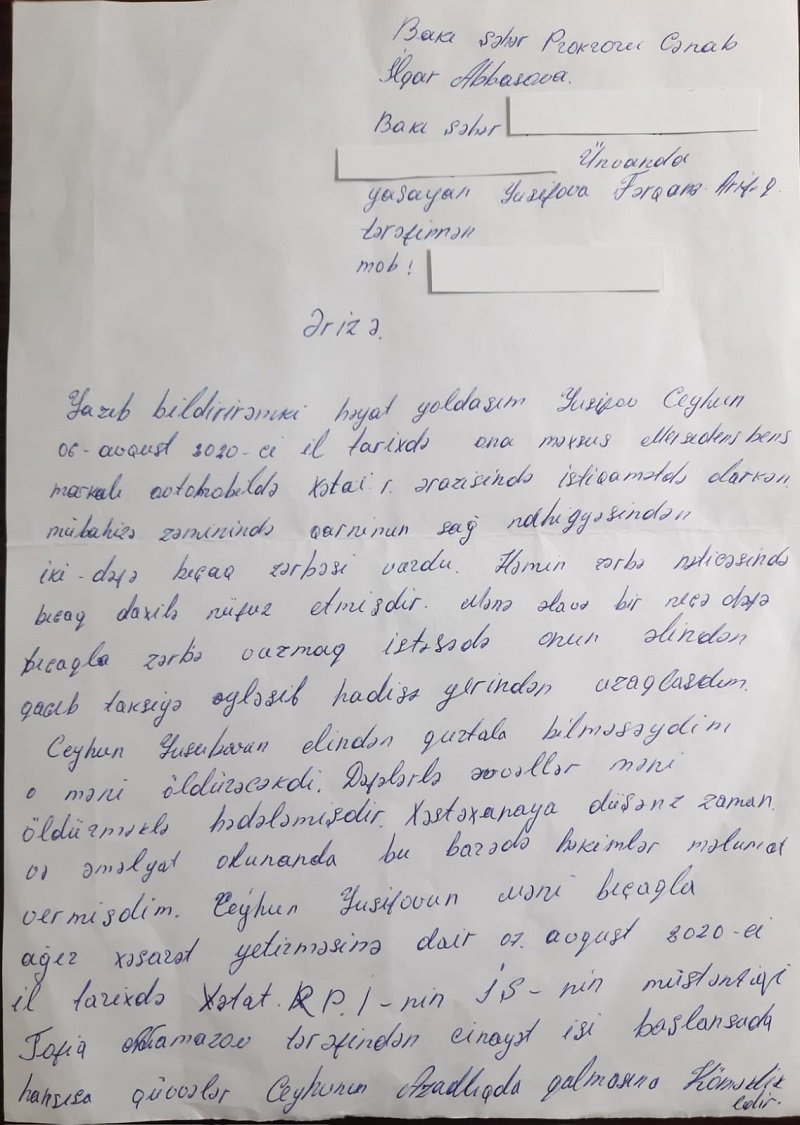 Bakı şəhər Prokroru Cənab
İlqar Abbasova.
Bakı şəhər
Ünvanda
yaşayan Yusifova Fərqanə Arif q.
tərəfinnən
mob!
Ərizə.
Yazıb bildirirəmki həyat yoldaşım Yusifov Ceyhun
06-avqust 2020-ci il tarixdə ona məxsus Mersedens bens
markalı avtomobildə Xətai.r. ərazisində istiqamətdə darkən
mübahizə zəminində qarnınun sağ nahiyyəsindən
iki-dəfə bıçaq zərbəsi vurdu. Həmin zərbə nəticəsində
bıçaq daxilə nüfuz etmişdir. Mənə əlavə bir neçə dəfə
bıçaqla zərbə vurmaq istəsədə onun əlindən
qaçıb taksiyə əyləşib hadisə yerindən uzaqlaşdım.
Ceyhun Yusubovun əlindən qurtala bilməsəydim
o məni öldürəcəkdi. Dəfələrlə əvvəllər məni
öldürməklə hədələmişdir. Xəstəxanaya düşənz zaman
və əməlyat olunanda bu barədə həkimlər məlumat
vermişdim. Ceyhun Yusifovun məni bıçaqla
ağır xəsarət yetirməsinə dair 07. avqust 2020-ci
il tarixdə Xətat. RP.İ-nin İŞ-nin müstəntiqi
Tofiq Namazov tərəfindən cinayət işi başlansada
hansısa qüvvələr Ceyhunun Azadlıqda qalmasına Köməklik
edir.